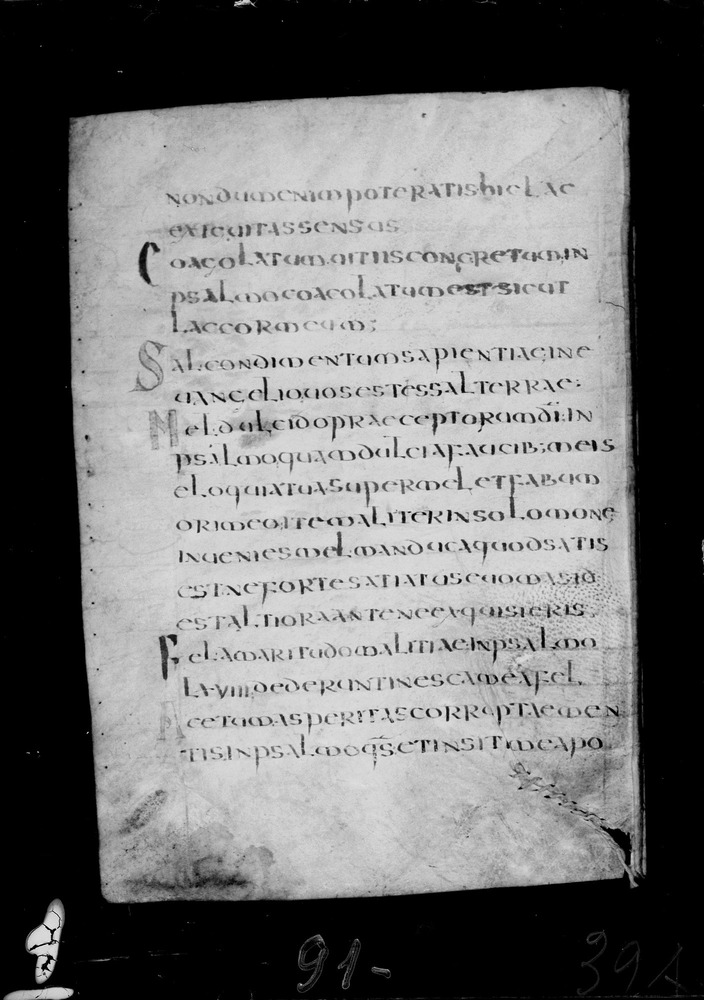 nondum enim poteratis hic lac
exiguitas sensus
Coacolatum uitiis concretum in
psalmo coacolatum est sicut
lac cor meum;
Sal condimentum sapientiae in e
uangelio uos estes sal terrae;
Mel dulcido praeceptorum dī in
psalmo quam dulcia faucib; meis
eloquia tua super mel et fabum
ori meo item aliter in solomone
inuenies mel manduca quod satis
est ne forte satiatus euomas id
est altiora ante ne exquisieris;
Fel amaritudo malitiae in psalmo
LXVIII dederunt in escam ea fel,
Acetum asperitas corruptae men
tis in psalmo q̄s et in siti mea po
91-
39A